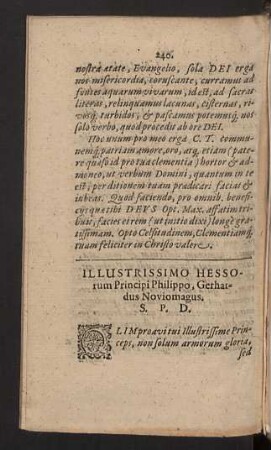 240.
nostra ætate, Evangelio, sola DEI erga
nos misericordia, coruscante, curramus ad
fontes aquarum vivarum, id est, ad sacras
literas, relinquamus lacunas, cisternas, ri-
vosq́; turbidos, & pascamus potemusq́; nos
solo verbo, quod procedit ab ore DEI.
Hoc unum pro meo erga C. T. commu-
nemq́; patriam amore, oro, atq; etiam (pate-
re quæso id pro tua clementia) hortor & ad-
moneo, ut verbum Domini, quantum in te
est, per ditionem tuam prædicari facias &
jubeas. Quod faciendo, pro omnib. benefi-
cijs quætibi DEVS Opt. Max. affatim tri-
buit, facies eirem (ut initio dixi) longè gra-
tissimam. Opto Celsitudinem, Clementiamq́;
tuam feliciter in Christo valere.
ILLUSTRISSIMO HESSO-
rum Principi Philippo, Gerhar-
dus Noviomagus,
S. P. D.
OLIM proavi tui Illustrissime Prin-
ceps, non solum armorum gloria,
sed